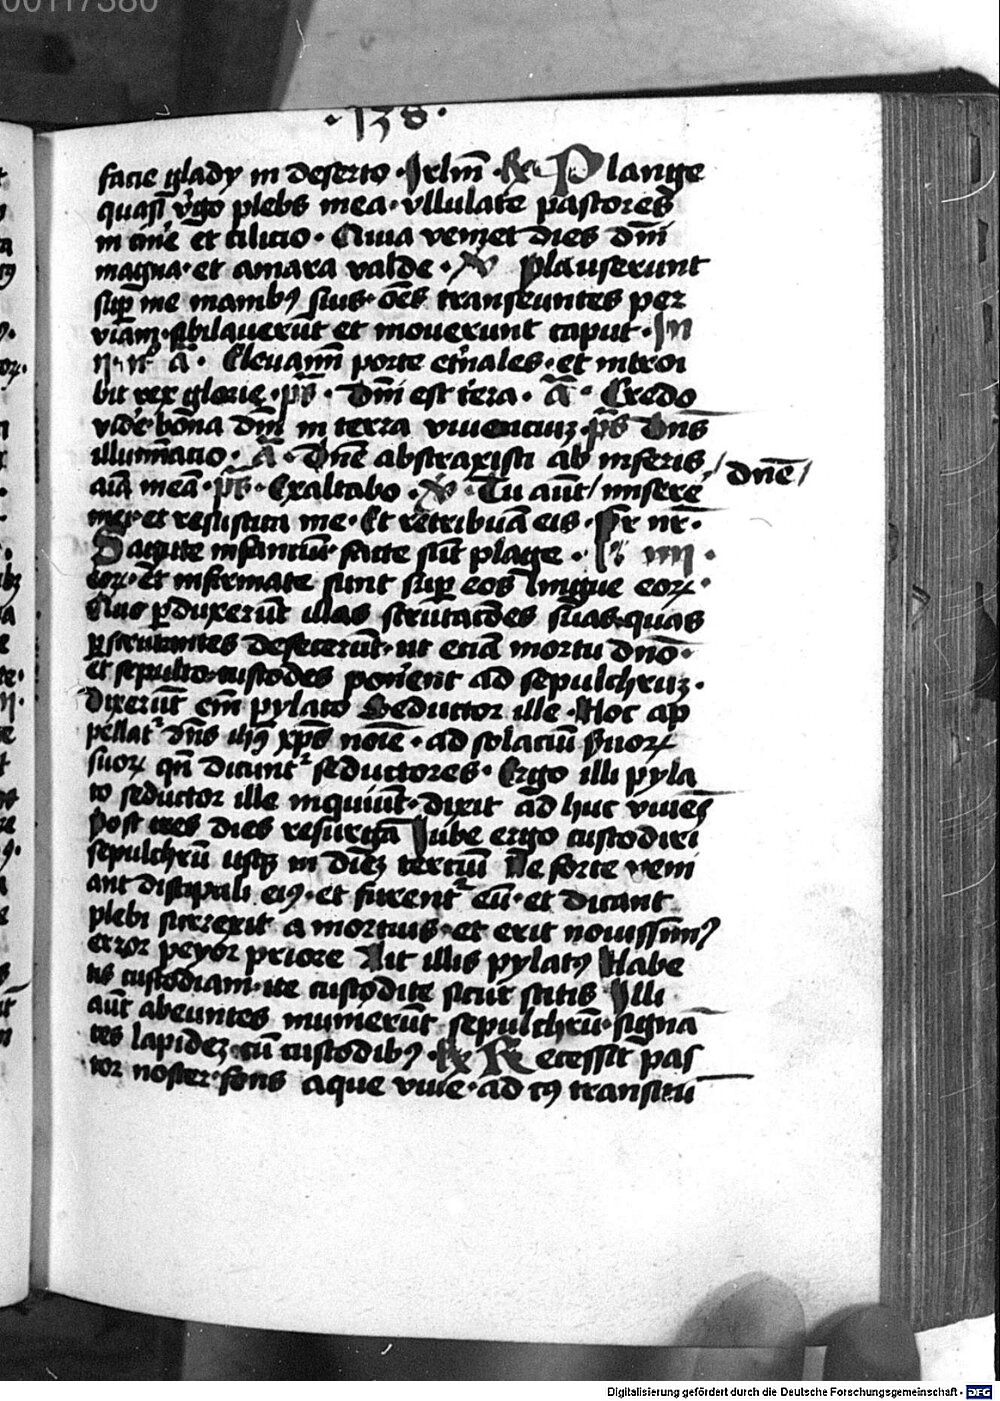 00117380
·138·
facie glady in deserto · Jrlm̄ · R Plange
quasi v̾go plebs mea · vllulate pastores
in cine̾ et cilicio · Quia veniet dies dn̄i
magna · et amara valde · V Plauserunt
sup̱ me manibꝰ suis · om̄s transeuntes per
viam · sibilauerūt et mouerunt caput · In
ij · nͦ ā · Eleuamī porte et̾nales · et introi
bit rex glorie · p̄s · Dn̄i est t̾ra · Ā · Credo
vide̾ bona dn̄i in terra viuenciuꝫ · p̄s Dn̄s
illumīacio · Ā · Dn̄e abstraxisti ab inferis
/ dn̄e /
aīā meā · p̄s · Exaltabo · V · Tu aūt / misere̾
mei · et resuscita me · Et retribuā eis · Pr̄ nr̄ ·
Sagitte infanciū · facte sūt plage · iiij ·
eoꝝ · et infirmate sunt sup̱ eos lingue eoꝝ ·
Quo ꝑduxerūt illas scrutacōēs suas · quas
ꝑscrutantes defecerūt · ut eciā mortuo dn̄o ·
et sepulto · custodes pone̾nt ad sepulchruꝫ ·
Dixerūt em̄ pylato Seductor ille · Hoc ap
pellat᷑ dn̄s ihꝰ xp̄s noīe · ad solaciū s̾uoꝝ
suoꝝ qn̄ dicunt᷑ seductores · Ergo illi pyla
to seductor ille inquiūt · dixit ad huc viues
post tres dies resurgā Jube ergo custodiri
sepulchrū usqꝫ in dieꝫ terciū Ne forte veni
ant discipuli eiꝰ · et furent᷑ eū · et dicant
plebi surrexit a mortuis · et erit nouissimꝰ
error peyor priore Ait illis pylatꝰ Habe
tis custodiam · ite custodite sicut scitis Illi
aūt abeuntes munierūt sepulchrū · signā
tes lapideꝫ cū custodibꝰ · R Recessit pas
tor noster · fons aque viue · ad cꝰ transitū
Digitalisierung gefördert durch die Deutsche Forschungsgemeinschaft - DFG